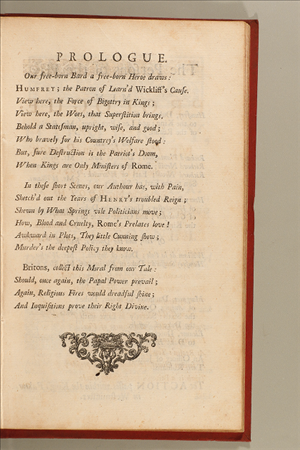 PROLOGUE.
Our free-born Bard a free-born Heroe draws:
HUMFREY; the Patron of Learn'd Wickliff's Cause.
View here, the Force of Bigotry in Kings;
View here, the Woes, that Superstition brings,
Behold a Statesman, upright, wise, and good;
Who bravely for his Country's Welfare stood:
But, sure Destruction is the Patriot's Doom,
When Kings are Only Ministers of Rome.
In these short Scenes, our Authour has, with Pain,
Sketch'd out the Years of HENRY's troubled Reign;
Shewn by What Springs vile Politicians move;
How, Blood and Cruelty, Rome's Prelates love!
Awkward in Plots, They little Cunning show;
Murder's the deepest Policy they know.
Britons, collect this Moral from our Tale:
Should, once again, the Papal Power prevail;
Again, Religious Fires would dreadful shine;
And Inquisitions prove their Right Divine.